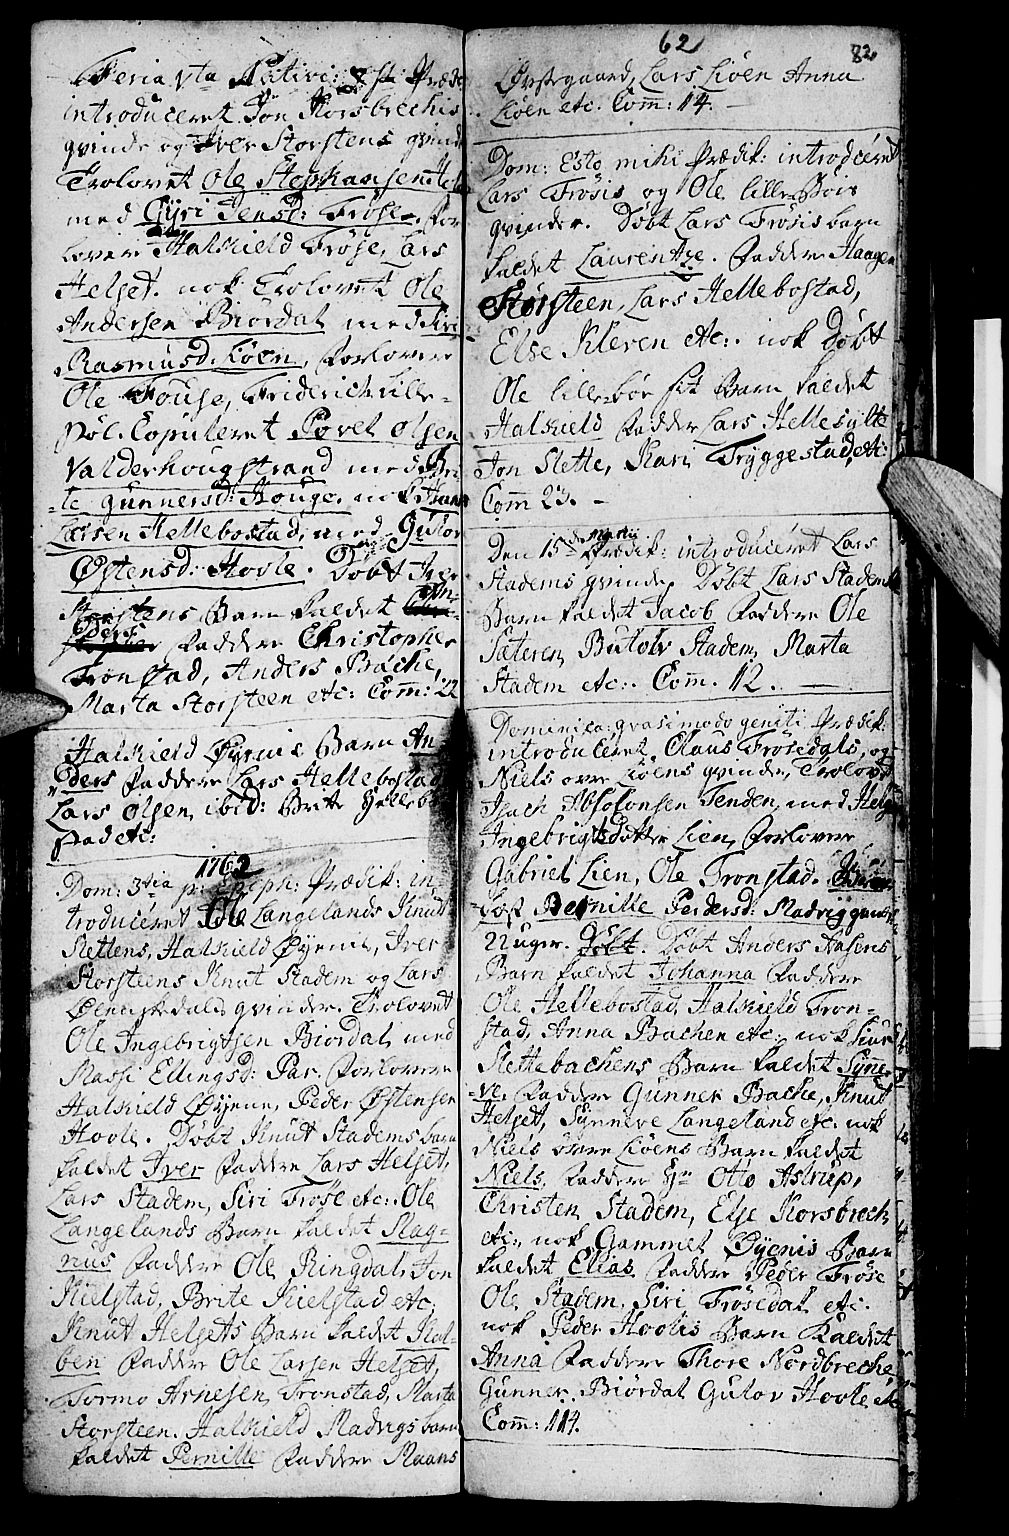 Feria 5ta Nativi: 8 st: Præde
introduceret Jon Korsbrechis
qvinde og Iver Storstens qvinde
Trolovet Ole Stephansen
med Gyri Jensd: Frøse. For
lovere Halkield Frøse, Lars
Helset. nok Trolovet Ole
Andersen Biørdal med
Rasmusd: Løen, Forlovere
Ole Fouse, Friderich Lille-
bøl. Copuleret Povel Olsen
Valderhougstrand med Bri-
te Gunnersd: Houge. nok
Larsen Hellebostad, med Gulov
Østensd: Hovle. Døbt Iver
Storstens Barn kaldet An-
ders Faddere Christopher
Tronstad, Anders Bache,
Marta Storsteen etc: Com: 22
Halkield Øyenis Barn An-
ders Faddere Lars Hellebostad
Lars Olsen, ibid: Brite Hellebo-
stad etc:
1762
Dom: 3tia p: Epiph: Prædik: in-
troduceret Ole Langelands Knut
Slettens, Halkield Øyene, Iver
Storsteens Knut Stadem og Lars
qvinder. Trolovet
Ole Ingebrigtsen Biørdal, med
Massi Ellingsd: Par. Forlovere
Halkield Øyene, Peder Østensen
Hovle. Døbt Knut Stadems barn
kaldet Iver Faddere Lars Helset,
Lars Stadem, Siri Frøse etc: Ole
Langelands Barn kaldet Mag-
nus Faddere Ole Ringdal, Jon
Kielstad, Brite Kielstad etc:
Knut Helsets Barn kaldet Kol-
ben Faddere Ole Larsen Helset,
Tormo Arnesen Tronstad, Marta
Storsteen. Halkield Madvigs barn
kaldet Pernille Faddere Maans
62
82
Øvstegaard, Lars Liøen Anna
Liøen etc. Com: 14. -
Dom: Esto mihi Prædik: introduceret
Lars Frøsis og Ole lille Bøis
qvinder. Døbt Lars Frøsis barn
kaldet Laurentze. Faddere Haagen
Storsteen, Lars Hellebostad,
Else Kleven etc: nok Døbt
Ole lille bøe sit Barn kaldet
Halkield Faddere Lars Hellesylte
Jon Slette, Kari Tryggestad, etc:
Com 23. -
Den 15de Martii Prædik: introduceret Lars
Stadems qvinde, Døbt Lars Stadems
Barn kaldet Jacob Faddere Ole
Sæteren, Butolv Stadem, Marta
Stadem etc:. Com. 12. -
Dominica qvasimodo geniti Prædik:
introduceret Olaus Frøsedals, og
Niels øvre Liøens qvinder, Trolovet
Isach Absolonsen Tenden, med Helge
Ingebrigtsdotter Lien, Forlovere
Gabriel Lien, Ole Tronstad.
døst Pernille Pedersd: Madvig gammel
22 uger. Døbt Anders Aasens
Barn kaldet Johanna Faddere
Ole Hellebostad, Halkield Tron-
stad, Anna Bachen etc: nok Siur
Slettebachens Barn kaldet Synne-
ve. Faddere Gunner Bache, Knut
Helset, Synneve Langeland etc. nok
Niels øvre Liøens Barn kaldet
Niels, Faddere Hr Otto Astrup,
Christen Stadem, Else Korsbrech
etc:, nok Gammel Øyenis Barn
kaldet Elias Faddere Peder Frøse
Ole Stadem, Siri Frøsedal etc.
nok Peder Hovlis Barn Kaldet
Anna Faddere Thore Nordbreche,
Gunner Biørdal Gulov Hovle etc
Com: 114.